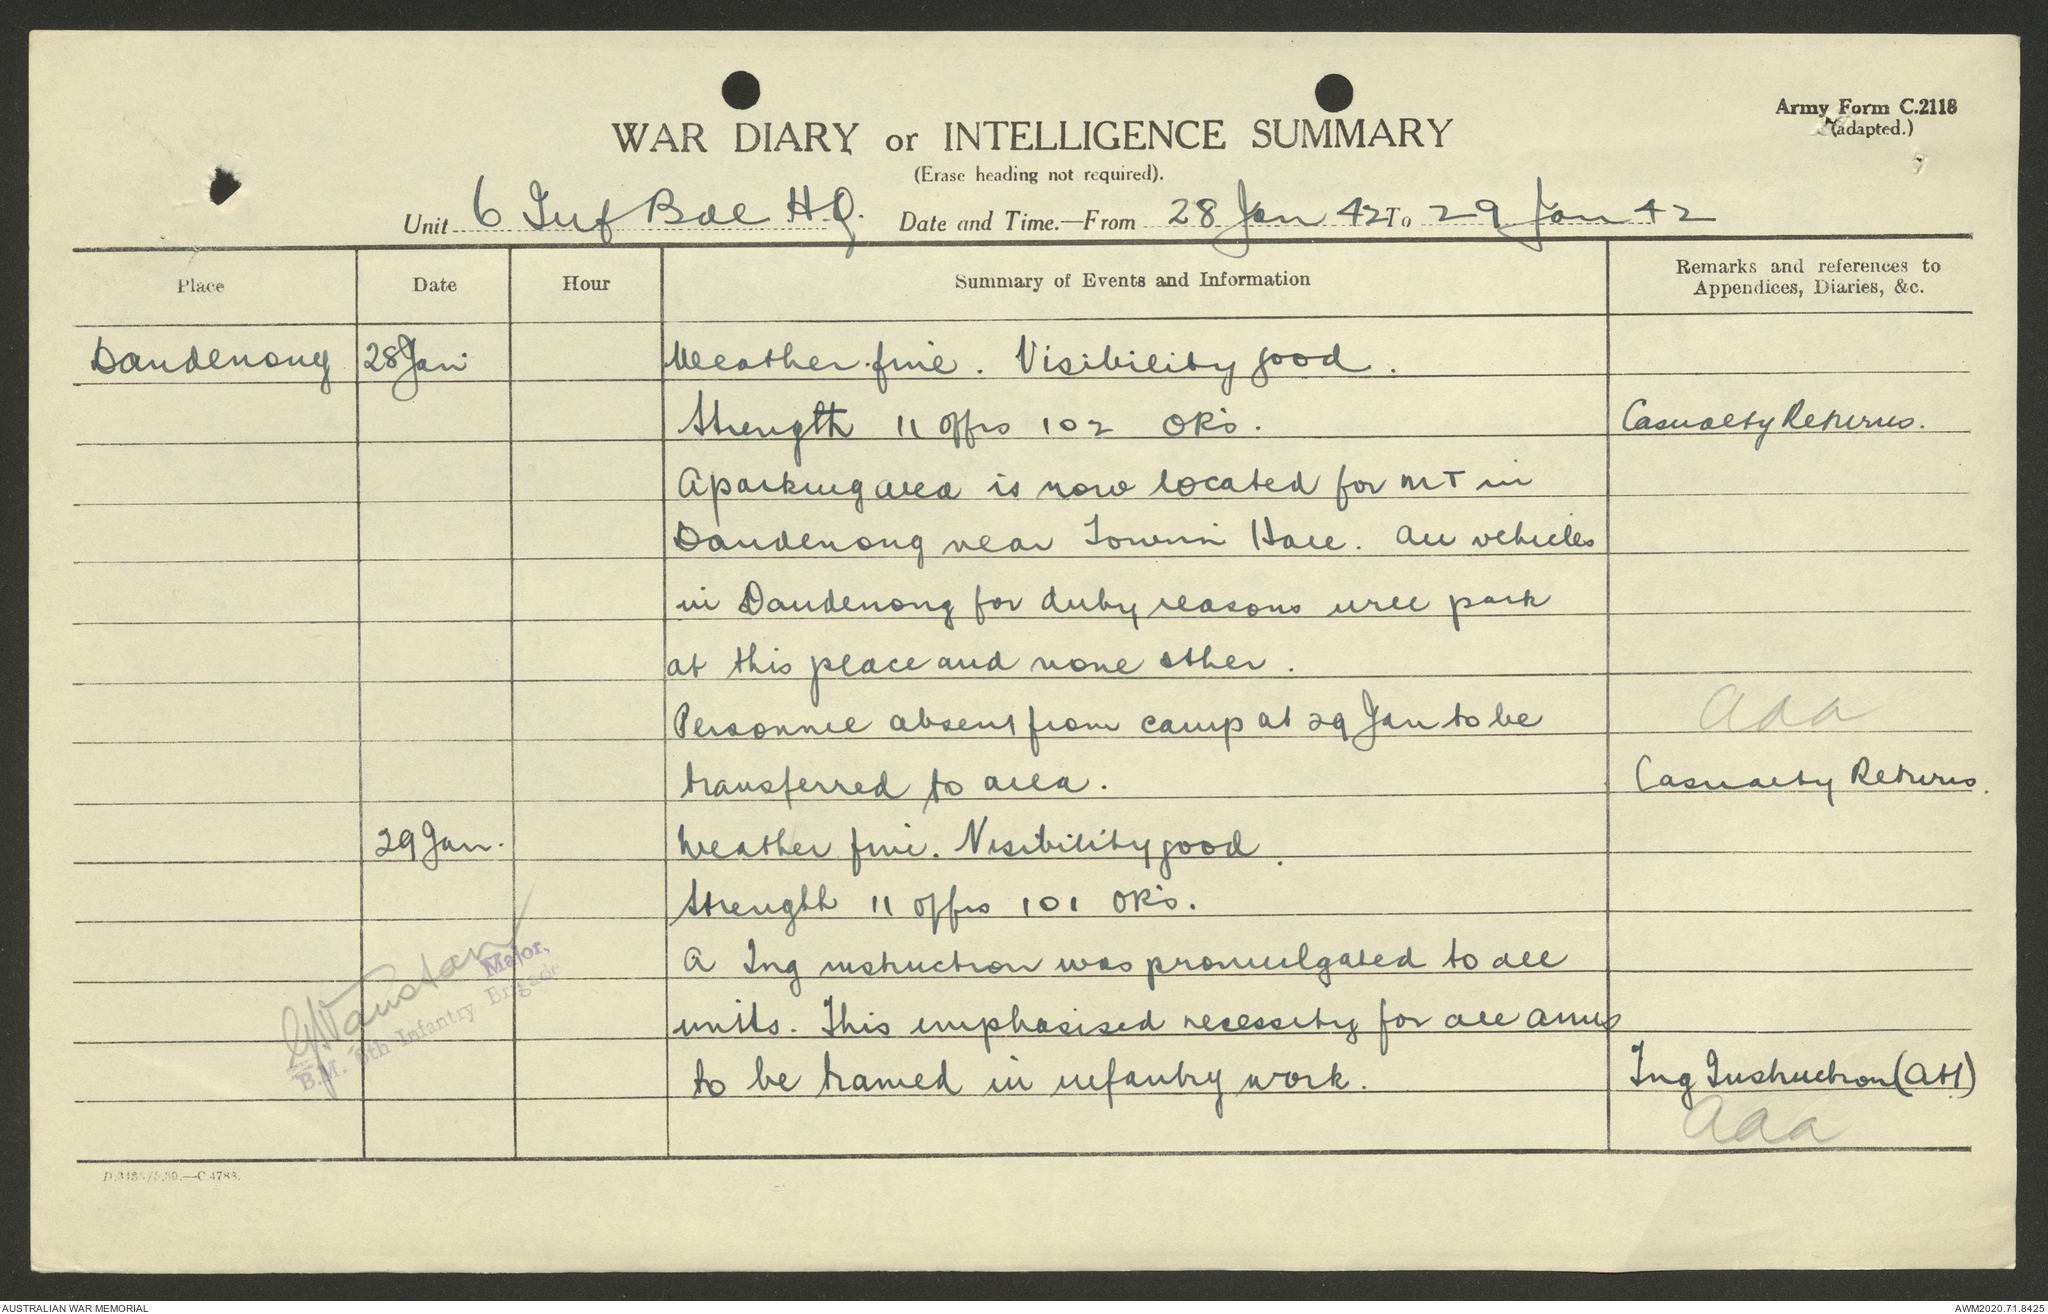 Army Form C.2118
(adapted.)
WAR DIARY or INTELLIGENCE SUMMARY
(Erase heading not required).
Unit 6 Inf Bde H.Q. Date and Time.—From 28 Jan 42 To 29 Jan 42
Place Date Hour Summary of Events and Information Remarks and references to Appendices, Diaries, &c.
Dandenong 28 Jan Weather fine. Visibility good.
Strength 11 offrs 102 OR's. Casualty Returns.
A parking area is now located for MT in
Dandenong near Town Hall. All vehicles
in Dandenong for duty reasons will park
at this place and none other.
Personnel absent from camp at 29 Jan to be aaa
transferred to area. Casualty Returns.
29 Jan. Weather fine. Visibility good.
Strength 11 offrs 101 OR's.
A Tng instruction was promulgated to all
units. This emphasised necessity for all arms
to be trained in infantry work. Tng Instruction (Att)
aaa
Major,
B.M. 6th Infantry Brigade
AUSTRALIAN WAR MEMORIAL
AWM2020.71.8425